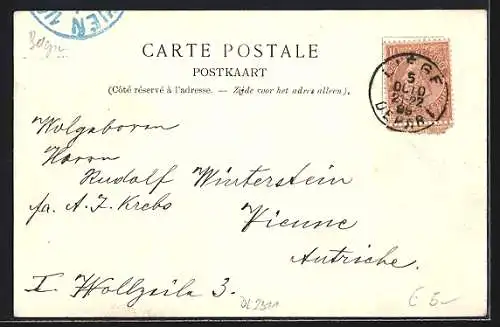 WIEN 1/1
Belgn
CARTE POSTALE
POSTKAART
(Côté réservé à l'adresse. — Zijde voor het adres alleen).
LIÉGE
5
OCTO
DEPART
Wolgeboren
Herrn
Rudolf Winterstein
fa. A. J. Krebo
Vienne
Autriche.
I. Wollzeile 3.
E 5-